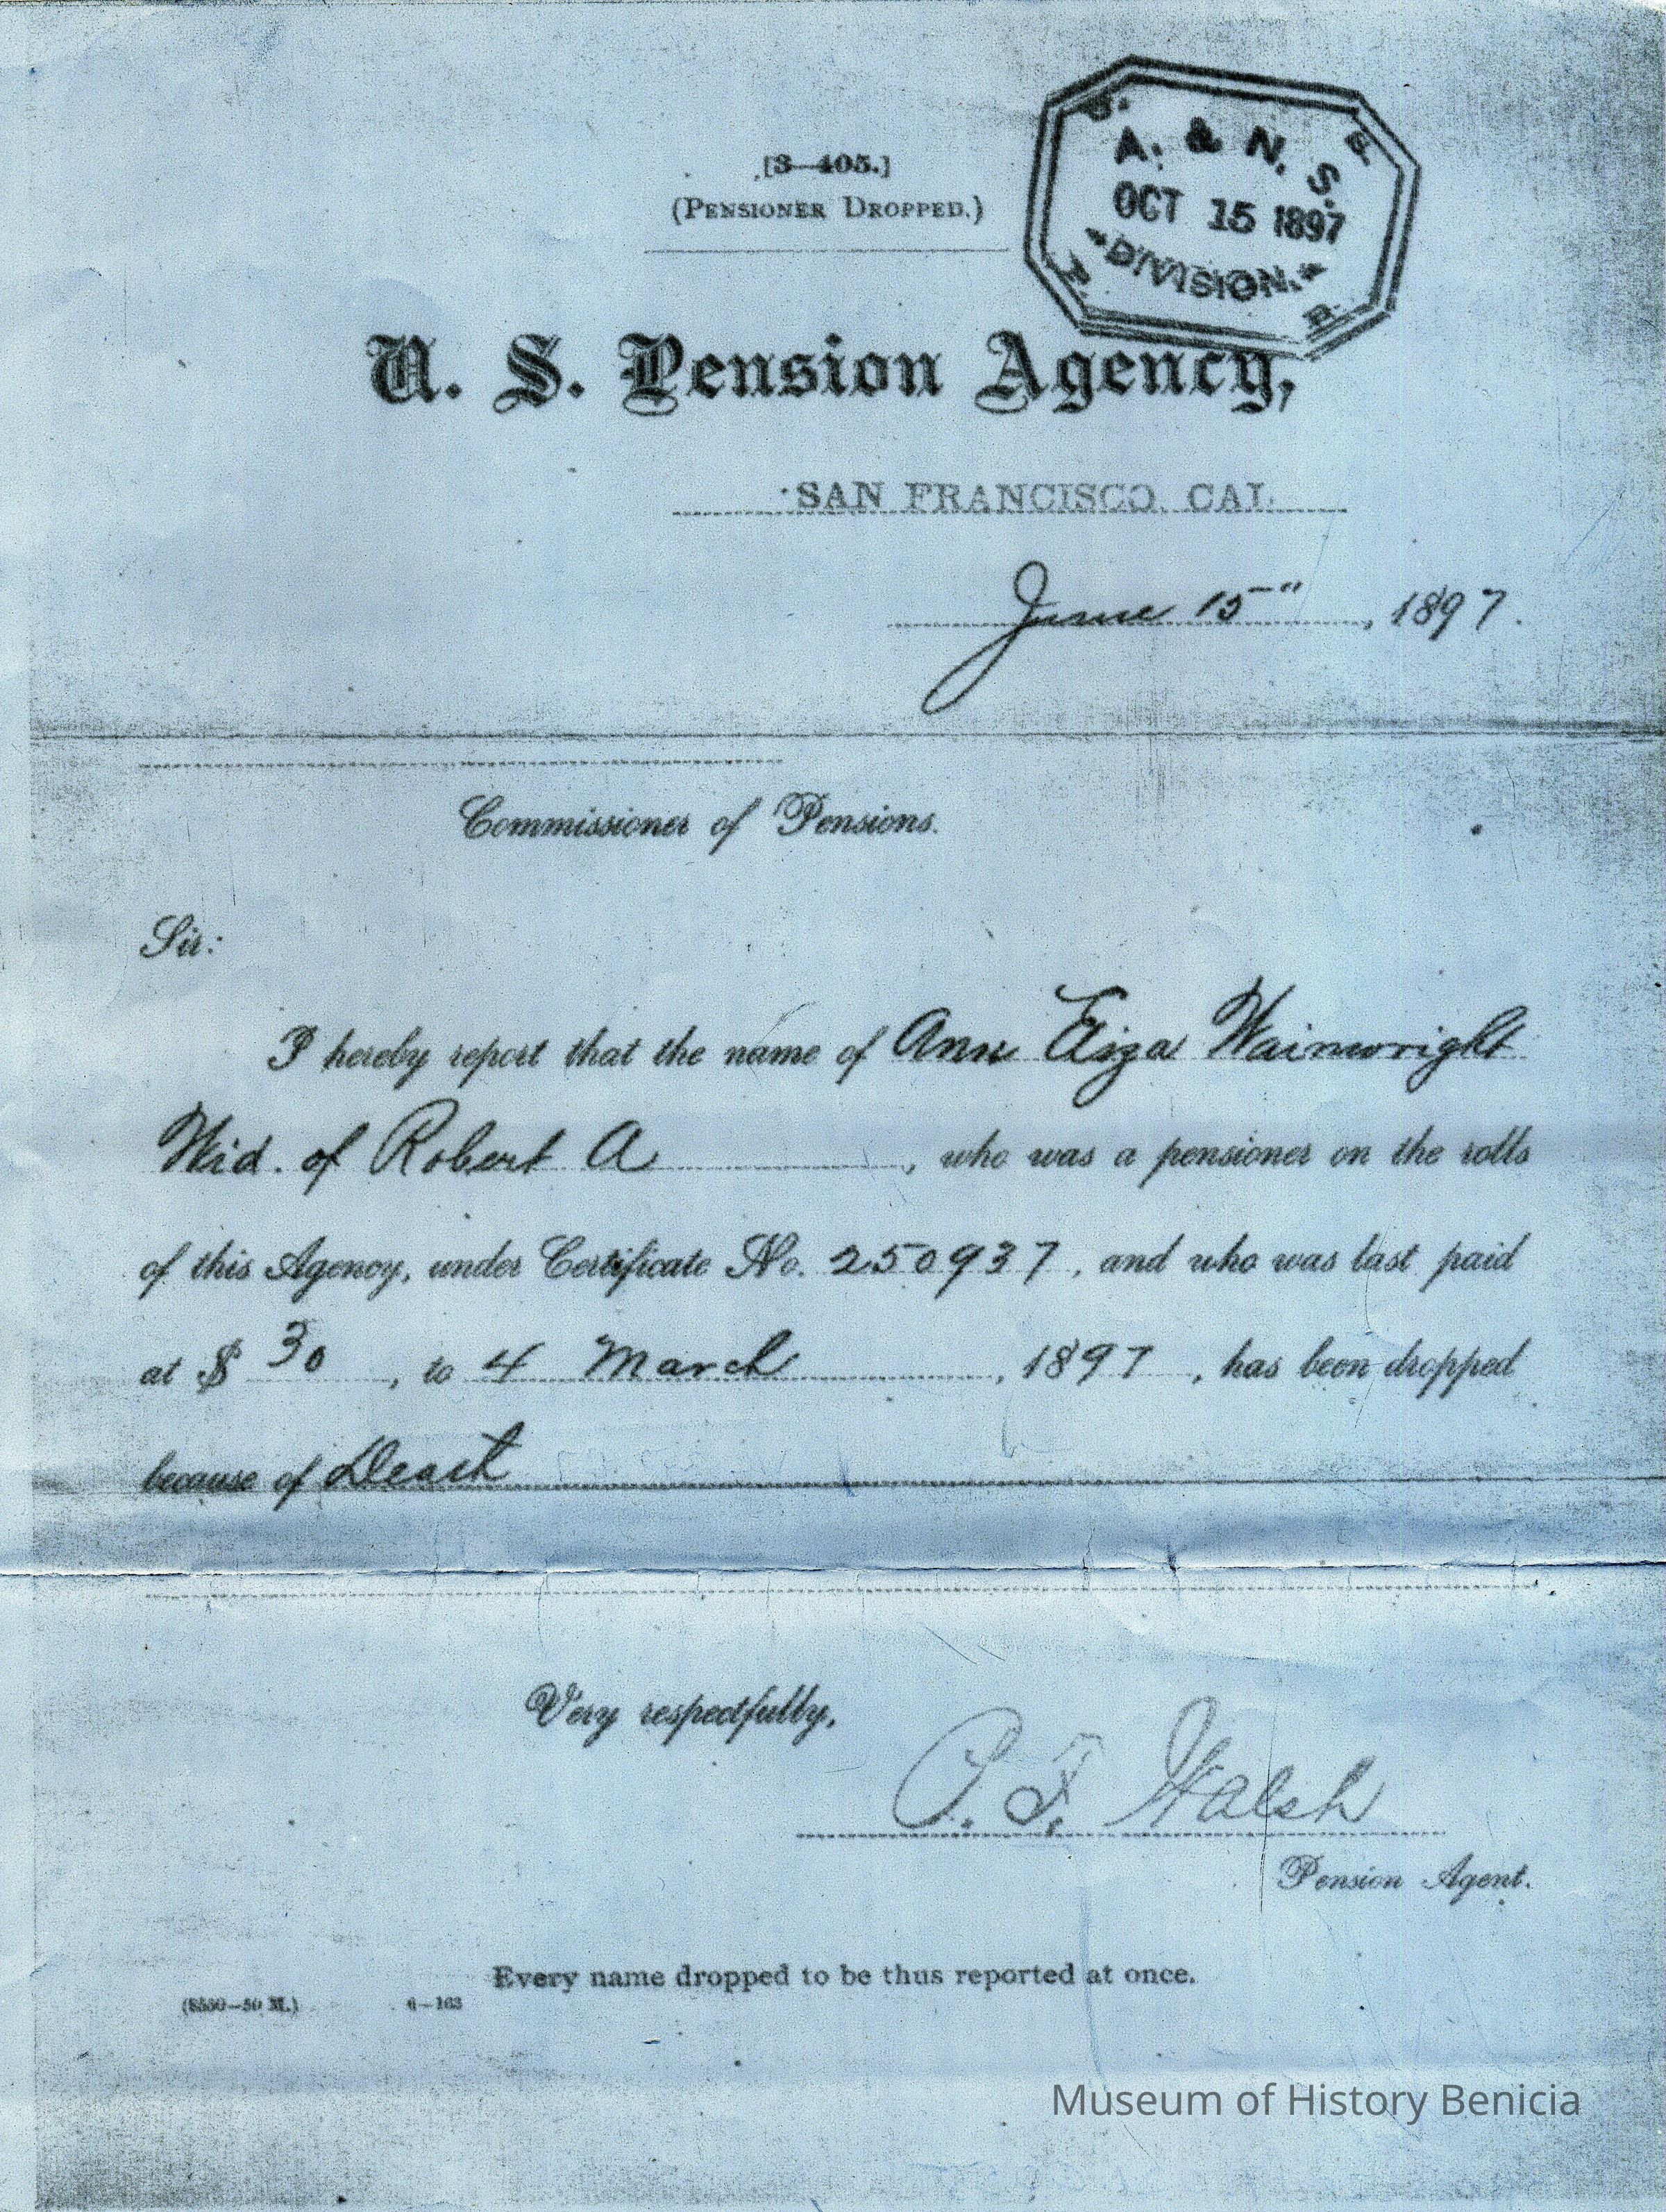 [3—405.]
(PENSIONER DROPPED.)
U. S. P. B.
A. & N. S.
OCT 15 1897
DIVISION.
U. S. Pension Agency,
SAN FRANCISCO, CAL.
June 15", 1897.
Commissioner of Pensions.
Sir:
I hereby report that the name of Ann Eliza Wainwright
Wid. of Robert A, who was a pensioner on the rolls
of this Agency, under Certificate No. 250937, and who was last paid
at $ 30, to 4 March, 1897, has been dropped
because of Death
Very respectfully,
P. F. Walsh
Pension Agent.
Every name dropped to be thus reported at once.
6—163
Museum of History Benicia